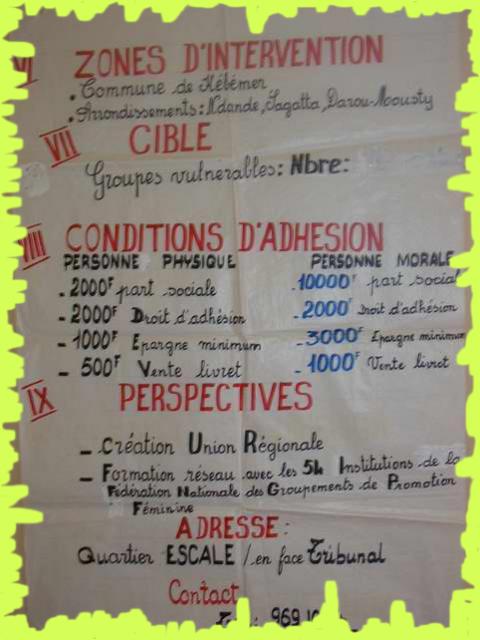 VI ZONES D'INTERVENTION
. Commune de Kébémer
. Arrondissements: Ndande, Sagatta, Darou-Mousty
VII CIBLE
Groupes vulnerables: Nbre:
VIII CONDITIONS D'ADHESION
PERSONNE PHYSIQUE PERSONNE MORALE
- 2000F part sociale - 10000F part social
- 2000F Droit d'adhésion - 2000F Droit d'adhésion
- 1000F Epargne minimum - 3000F Epargne minimum
- 500F Vente livret - 1000F Vente livret
IX PERSPECTIVES
- Création Union Régionale
- Formation réseau avec les 54 Institutions de la
Fédération Nationale des Groupements de Promotion
Féminine
ADRESSE:
Quartier ESCALE / en face Tribunal
Contact
969